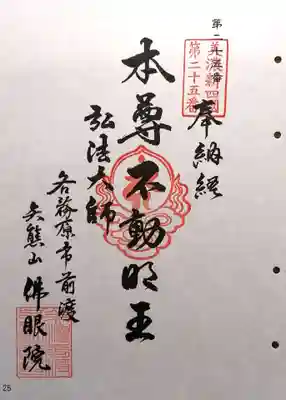 美濃新四國
第二十五番
奉納経
本尊不動明王
弘法大師
各務原市前渡
矢熊山 佛眼院
25